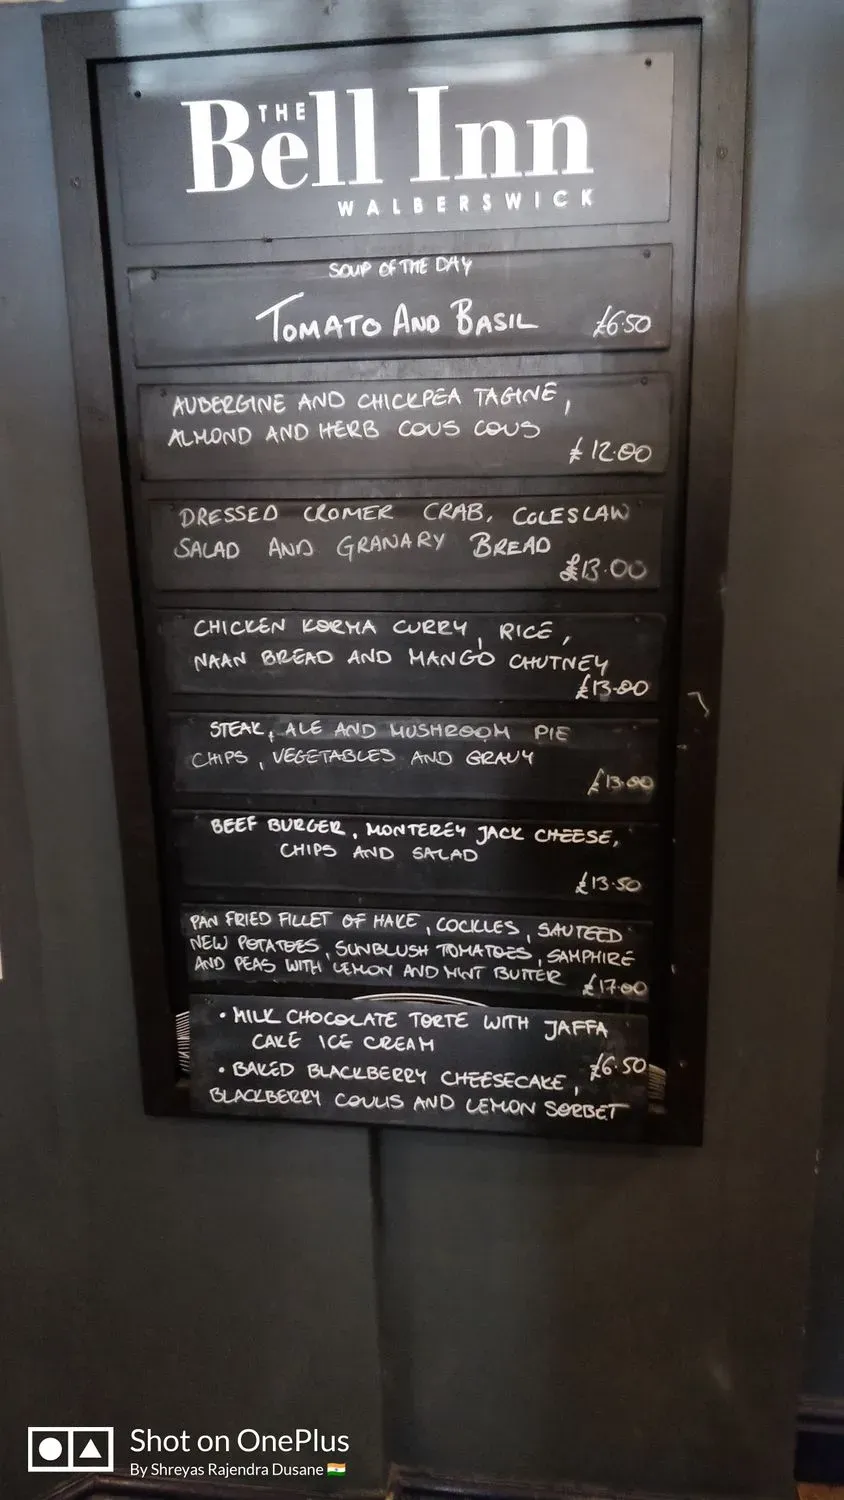 THE
Bell Inn
WALBERSWICK
SOUP OF THE DAY
TOMATO AND BASIL £6.50
AUBERGINE AND CHICKPEA TAGINE,
ALMOND AND HERB COUS COUS
£12.00
DRESSED CROMER CRAB, COLESLAW
SALAD AND GRANARY BREAD
£13.00
CHICKEN KORMA CURRY, RICE,
NAAN BREAD AND MANGO CHUTNEY
£13.00
STEAK, ALE AND MUSHROOM PIE
CHIPS, VEGETABLES AND GRAVY
£13.00
BEEF BURGER, MONTEREY JACK CHEESE,
CHIPS AND SALAD
£13.50
PAN FRIED FILLET OF HAKE, COCKLES, SAUTEED
NEW POTATOES, SUNBLUSH TOMATOES, SAMPHIRE
AND PEAS WITH LEMON AND MINT BUTTER £17.00
• MILK CHOCOLATE TORTE WITH JAFFA
CAKE ICE CREAM
£6.50
• BAKED BLACKBERRY CHEESECAKE,
BLACKBERRY COULIS AND LEMON SORBET
Shot on OnePlus
By Shreyas Rajendra Dusane 🇮🇳